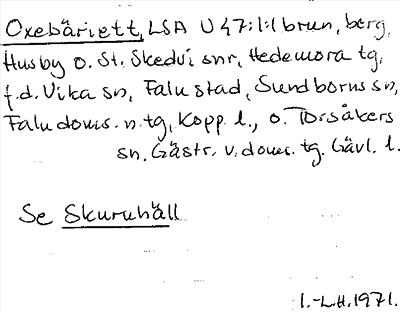 Oxebäriett, LSA U 47:1:1 brun, berg,
Husby o. St. Skedvi snr, Hedemora tg,
f.d. Vika sn, Falu stad, Sundborns sn,
Falu doms. n. tg, Kopp. l., o. Torsåkers
sn. Gästr. v. doms. tg. Gävl. l.
Se Skuruhäll
I.-L.H. 1971.